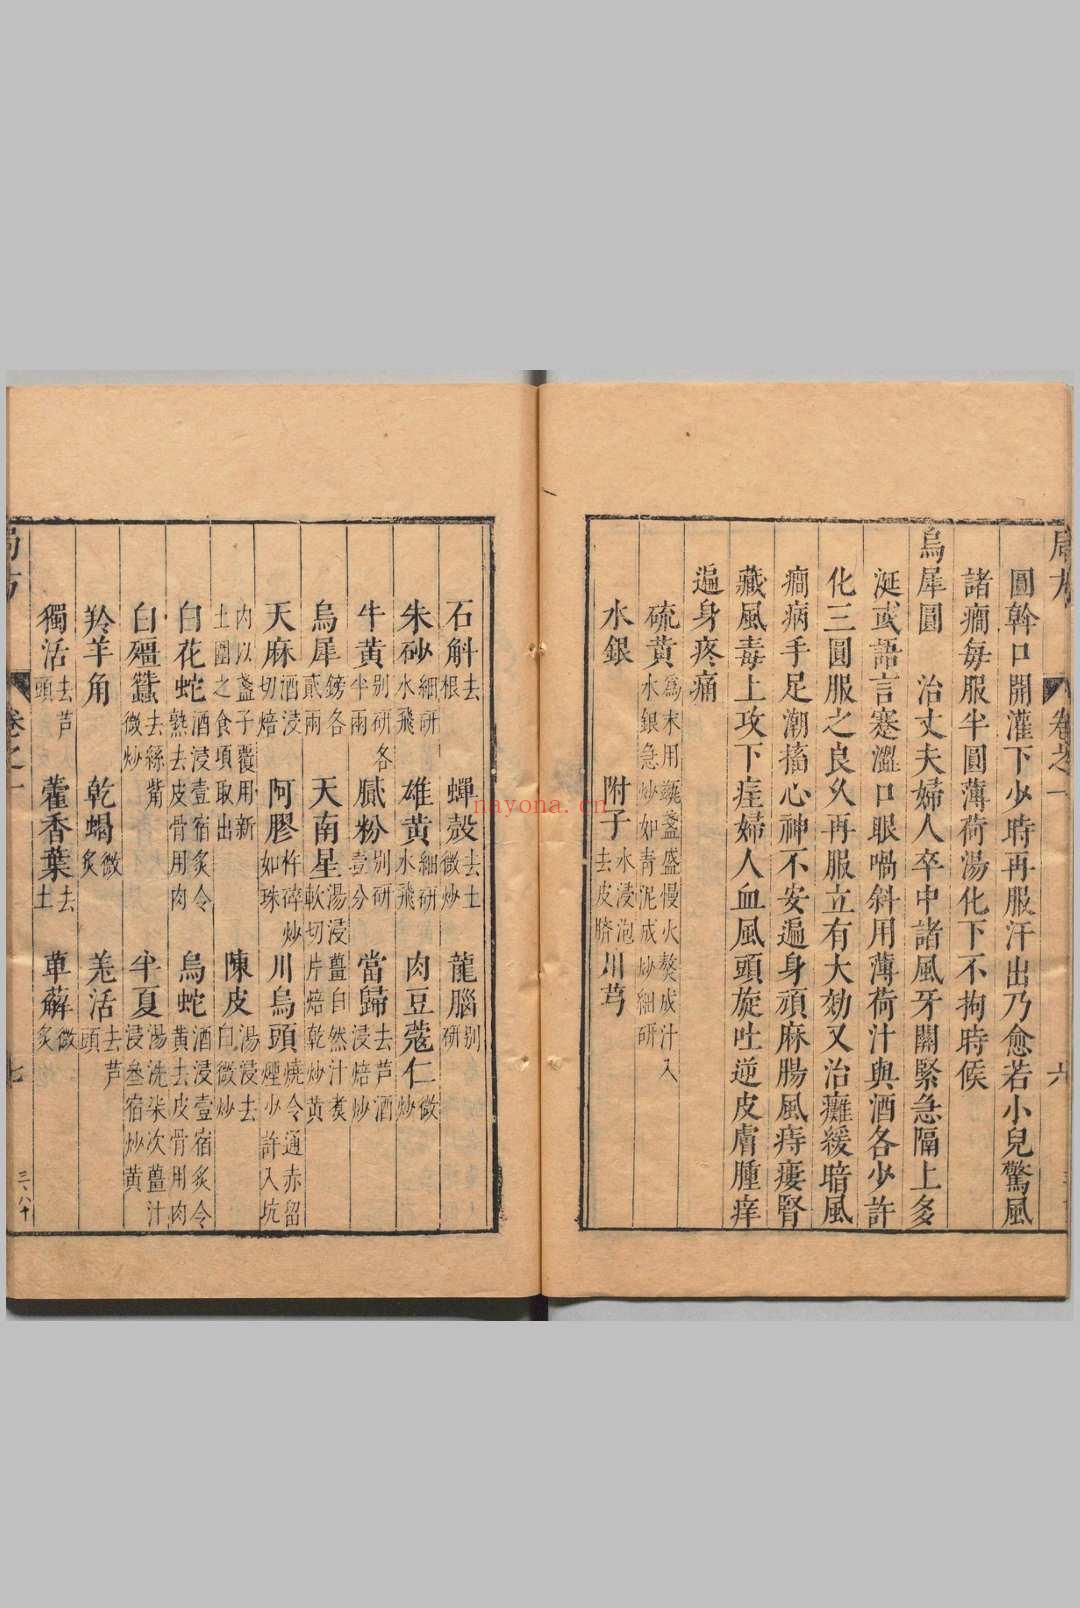 圓斡口開灌下少時再服汗出乃愈若小兒驚風
諸癎每服半圓薄荷湯化下不拘時候
烏犀圓 治丈夫婦人卒中諸風牙關緊急隔上多
涎或語言蹇澀口眼喎斜用薄荷汁與酒各少許
化三圓服之良久再服立有大効又治癱緩暗風
癎病手足潮搐心神不安遍身頑麻腸風痔瘻腎
藏風毒上攻下疰婦人血風頭旋吐逆皮膚腫痒
遍身疼痛
硫黃爲末用甆盞盛慢火熬成汁入水銀急炒如青泥成炒細研
水銀 附子水浸泡去皮臍 川芎
石斛去根 蟬殼去土微炒 龍腦別研
朱砂細研水飛 雄黃細研水飛 肉豆蔻仁微炒
牛黃別研各半兩 膩粉別研壹分 當歸去芦酒浸焙炒
烏犀鎊各貳兩 天南星湯浸軟切 薑自然汁煮片焙乾炒黃
天麻酒浸切焙 阿膠杵碎炒如珠 川烏頭燒令通赤留煙少許入坑
內以盞子覆用新土圍之食頃取出 陳皮湯浸去白微炒
白花蛇酒浸壹宿炙令熟去皮骨用肉 烏蛇酒浸壹宿炙令黃去皮骨用肉
白殭蠶去絲觜微炒 半夏湯洗柒次薑汁浸叁宿炒黃
羚羊角 乾蝎微炙 羌活去芦頭
獨活去芦頭 藿香葉去土 萆薢微炙
局方 卷之一 七 三八十
局方 卷之一 六
nayona.cn